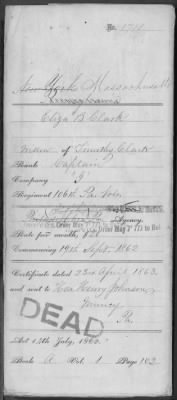 No. 1711
New York Massachusetts
Pennsylvania
Eliza B. Clark
Widow of Timothy Clark
Rank Captain
Company "G"
Regiment 106th Pa. Vols
Agency.
Rate per month, $20
Commencing 19th Sept. 1862
Certificate dated 23rd April 1863.
and sent to Hon Henry Johnson,
Muncy
Pa
DEAD
Act 14th July, 1862.
Book A Vol. 1 Page 102